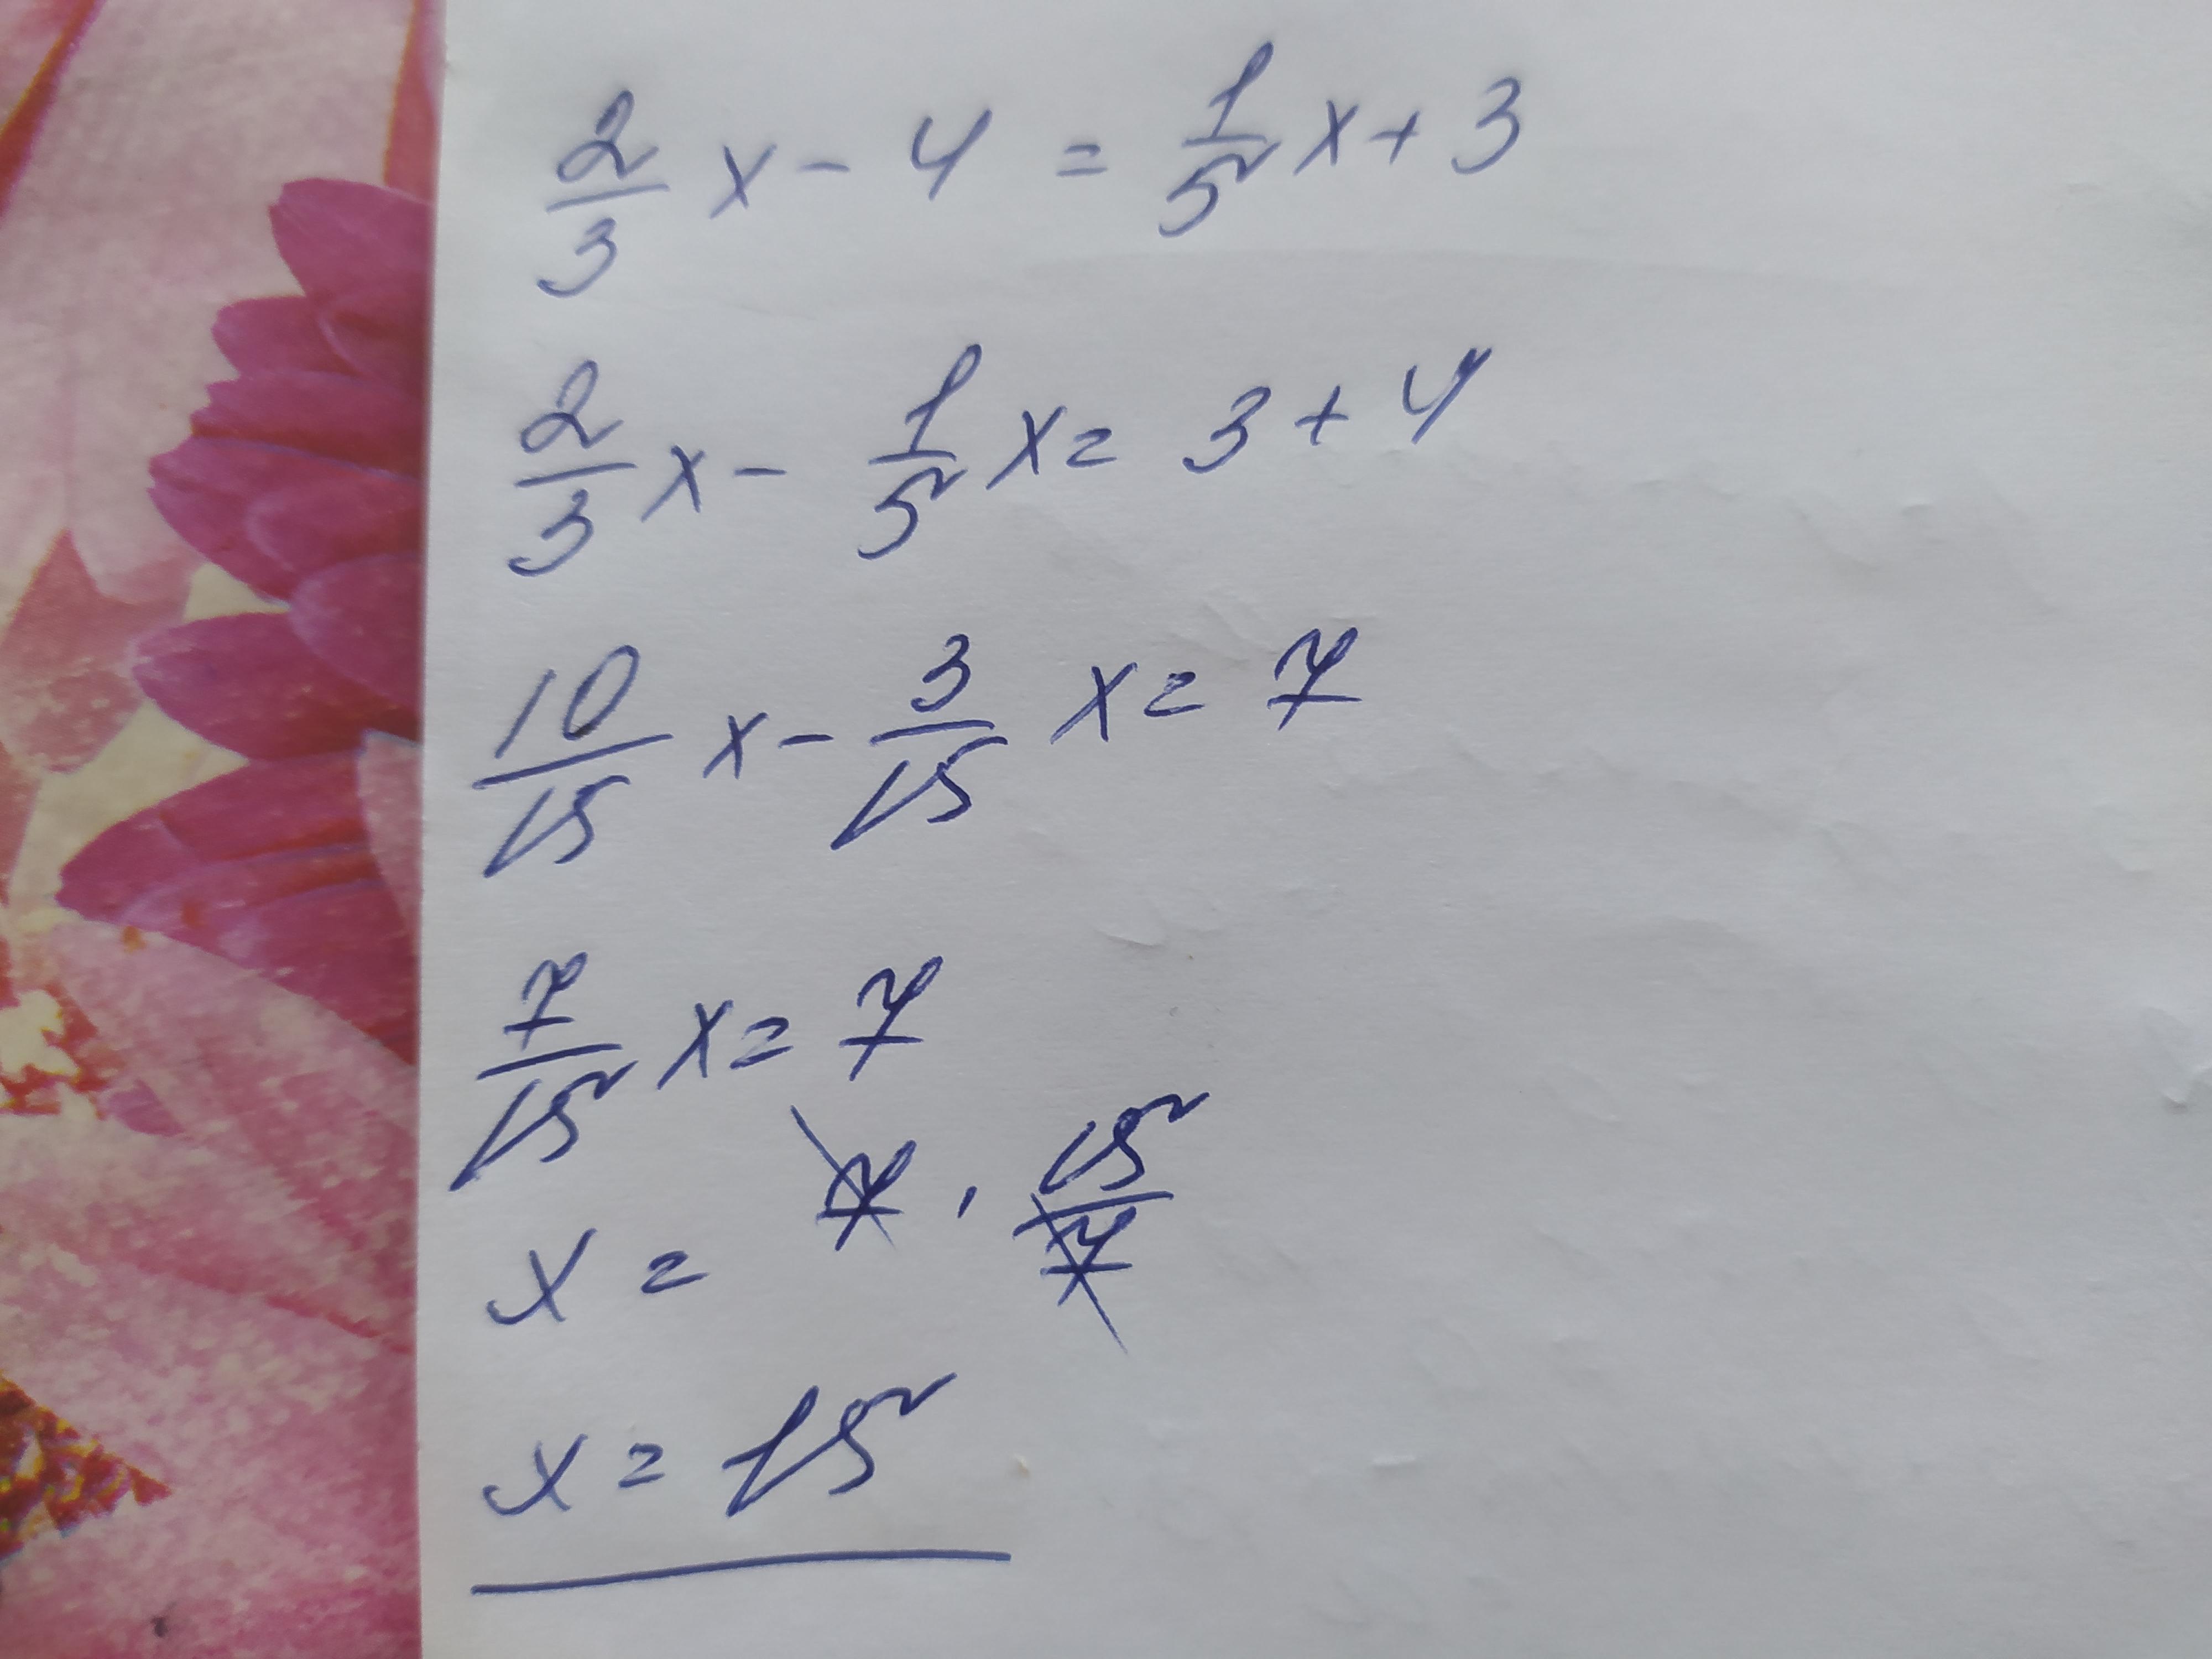 2/3 x - 4 = 1/5 x + 3
2/3 x - 1/5 x = 3 + 4
10/15 x - 3/15 x = 7
7/15 x = 7
x = 7 · 15/7
x = 15